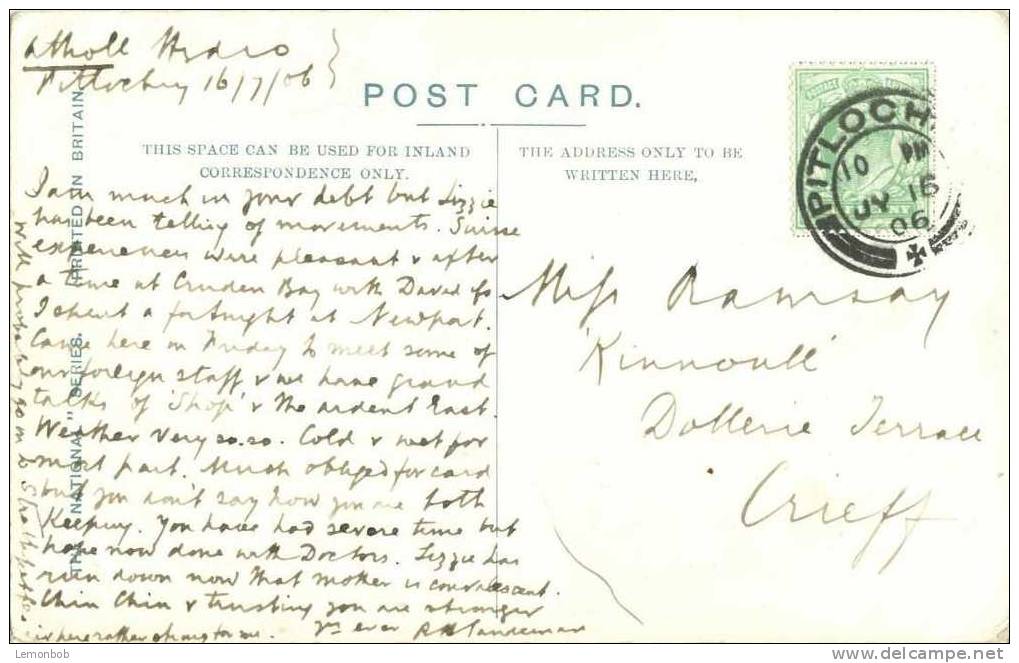 Atholl Hydro
Pitlochry 16/7/06
POST CARD.
THIS SPACE CAN BE USED FOR INLAND
CORRESPONDENCE ONLY.
THE ADDRESS ONLY TO BE
WRITTEN HERE,
PITLOCH
10 PM
JY 16
06
I am much in your debt but Lizzie
has been telling of movements. Suisse
experiences were pleasant & after
a time at Cruden Bay with David
I spent a fortnight at Newport.
Came here on Friday to meet some of
our foreign staff & we have grand
talks of 'Shop' & the ardent East.
Weather very so.so. Cold & wet for
most part. Much obliged for card
but you don't say how you are both
keeping. You have had severe time but
hope now done with Doctors. Lizzie has
run down now that mother is convalescent.
Chin Chin & trusting you are stronger
Yrs ever R H Sandeman
will probably go on to
air here rather strong for me.
Miss Ramsay
'Kinnoull'
Dollerie Terrace
Crieff
THE "NATIONAL" SERIES.
PRINTED IN BRITAIN.
Lemonbob
www.delcampe.net